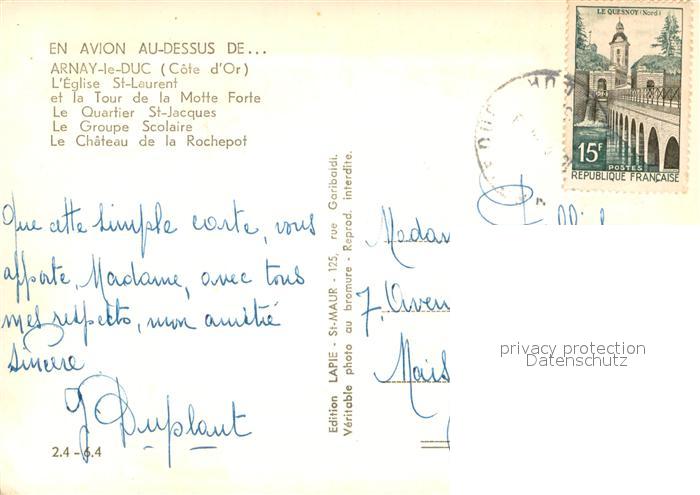 EN AVION AU-DESSUS DE...
ARNAY-le-DUC (Côte d'Or)
L'Église St-Laurent
et la Tour de la Motte Forte
Le Quartier St-Jacques
Le Groupe Scolaire
Le Château de la Rochepot
Que cette simple carte, vous
apporte, Madame, avec tous
mes respects, mon amitié
sincère
J Duplaut
2.4 - 6.4
Edition LAPIE - St-MAUR - 125, rue Garibaldi.
Véritable photo au bromure - Reprod. interdite.
LE QUESNOY (Nord)
15F
POSTES
RÉPUBLIQUE FRANÇAISE
Madam
7, Aven
Mais
privacy protection
Datenschutz